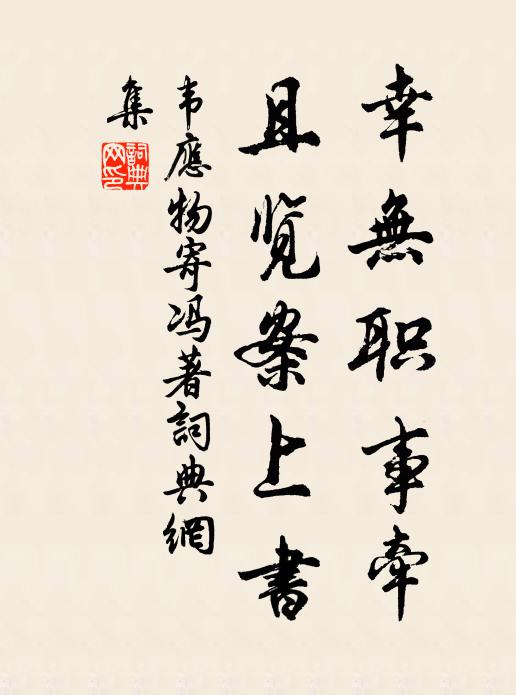 幸無职事牽
且览案上書
韦應物寄冯著詞典網
集
詞典
网印